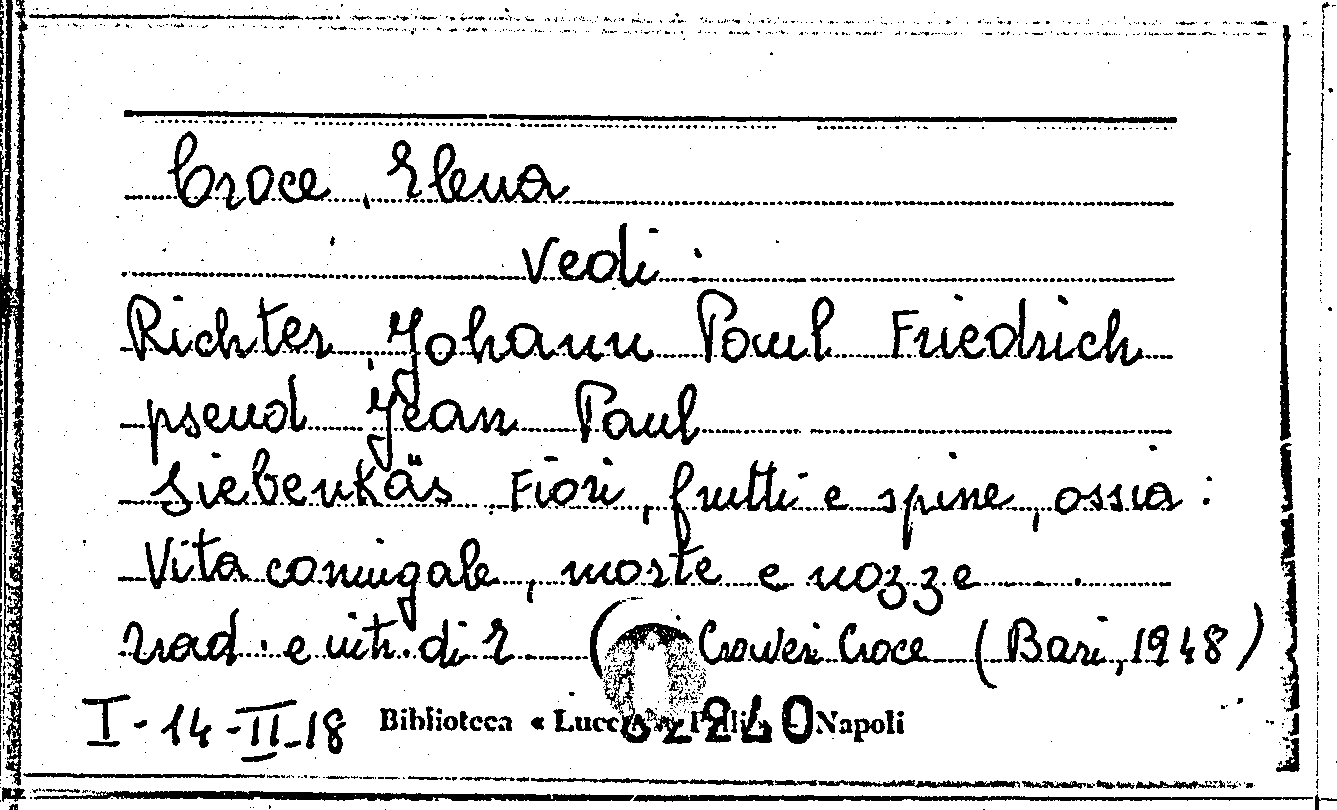 Croce, Elena
vedi:
Richter, Johann Paul Friedrich
pseud Jean Paul
Siebenkäs Fiori, frutti e spine, ossia:
Vita coniugale, morte e nozze
trad. e intr. di E ( Craveri Croce (Bari, 1948)
I-14-II-18 Biblioteca « Lucchesi Palli » Napoli